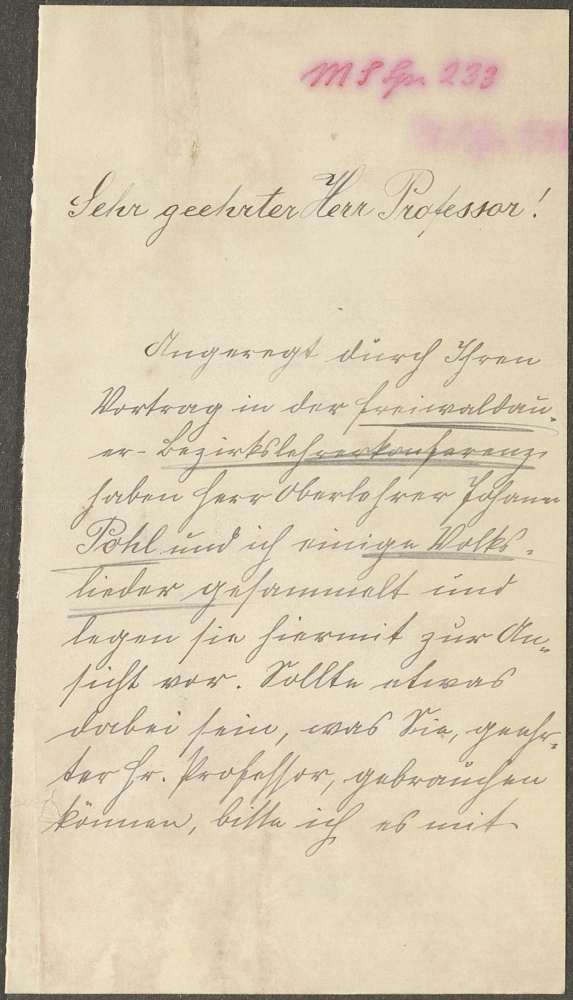 M S Spr. 233
Sehr geehrter Herr Professor!
Angeregt durch Ihren
Vortrag in der freiwaldau-
er-Bezirkslehrerkonferenz
haben Herr Oberlehrer Johann
Pohl und ich einige Volks-
lieder gesammelt und
legen sie hiermit zur An-
sicht vor. Sollte etwas
dabei sein, was Sie, geehr-
ter Hr. Professor, gebrauchen
können, bitte ich es mit